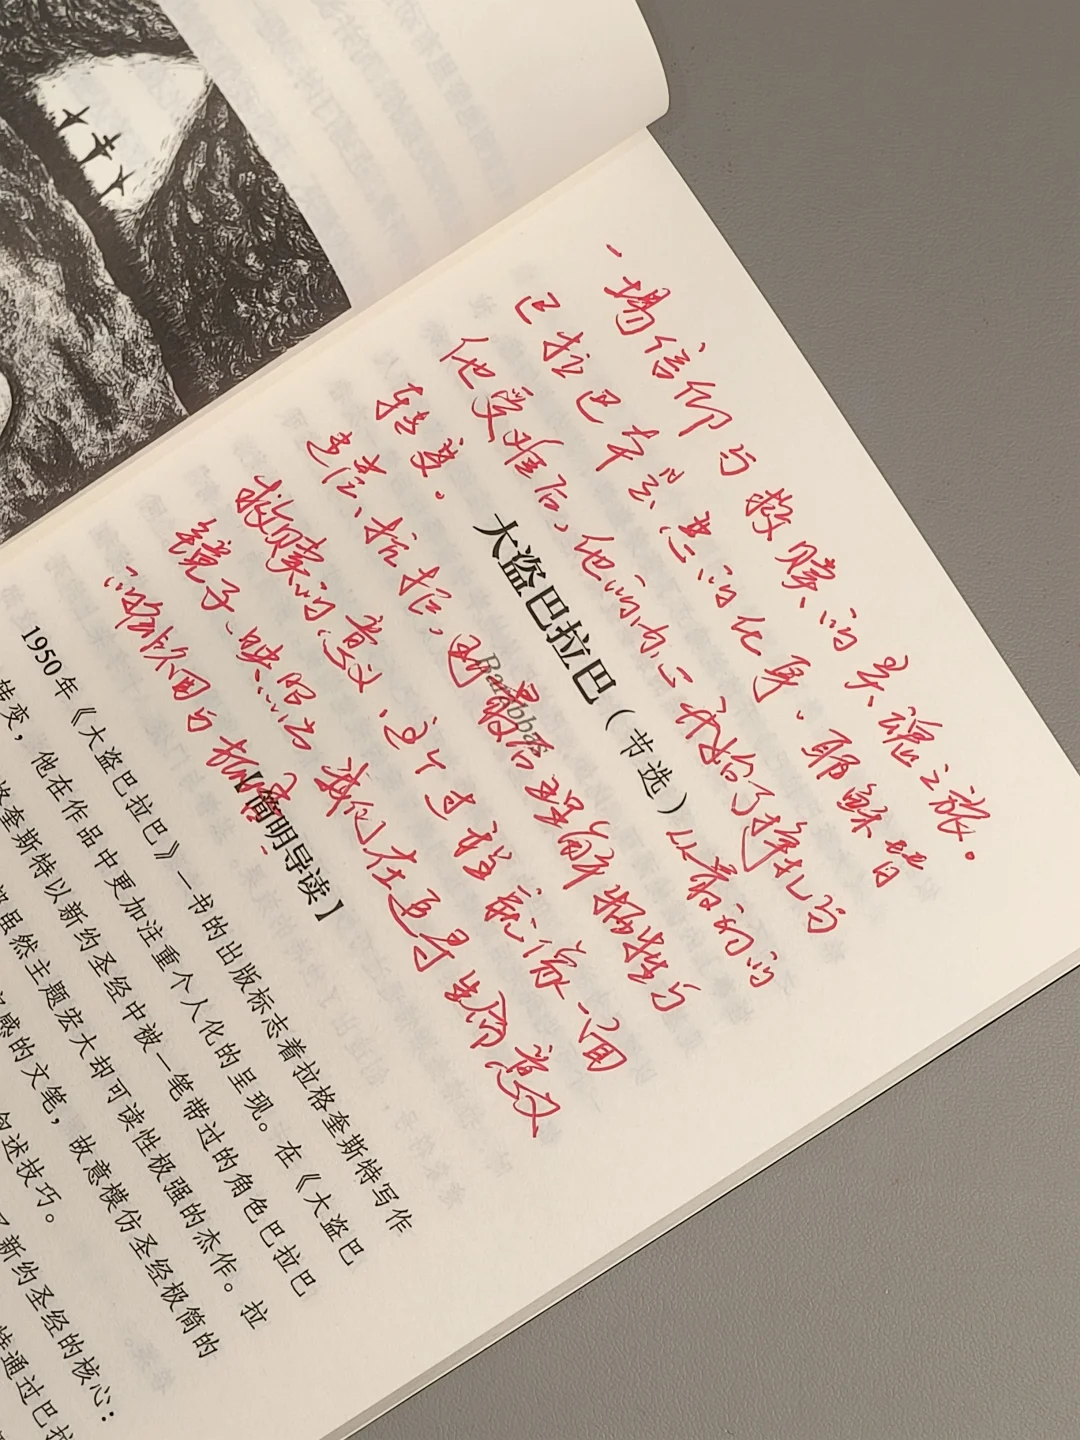 一场信仰与救赎的灵魂之旅。
巴拉巴本是恶的化身。耶稣替
他受难后，他的内心开始了挣扎与
转变。
从最初的
迷茫、抗拒，到最后理解牺牲与
救赎的意义，这个过程就像一面
镜子，映照出我们在追寻生命意义
的
困与
大盗巴拉巴（节选）
Barabbas
【简明导读】
1950年《大盗巴拉巴》一书的出版标志着拉格奎斯特写作
转变，他在作品中更加注重个人化的呈现。在《大盗巴
格奎斯特以新约圣经中被一笔带过的角色巴拉巴
虽然主题宏大却可读性极强的杰作。拉
感的文笔，故意模仿圣经极简的
述技巧。
新约圣经的核心：
特通过巴拉